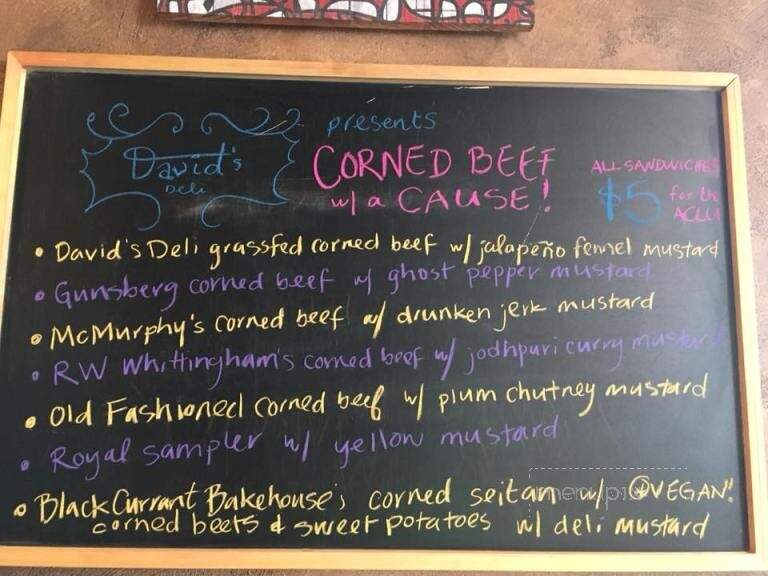 David's
Deli
presents
CORNED BEEF
w/ a CAUSE!
ALL SANDWICHES
$5 for the
ACLU
• David's Deli grassfed corned beef w/ jalapeño fennel mustard
• Gunsberg corned beef w/ ghost pepper mustard
• McMurphy's corned beef w/ drunken jerk mustard
• RW Whittingham's corned beef w/ jodhpuri curry mustard
• Old Fashioned corned beef w/ plum chutney mustard
• Royal sampler w/ yellow mustard
• BlackCurrant Bakehouse's corned seitan w/ VEGAN!
corned beets & sweet potatoes w/ deli mustard
menupix